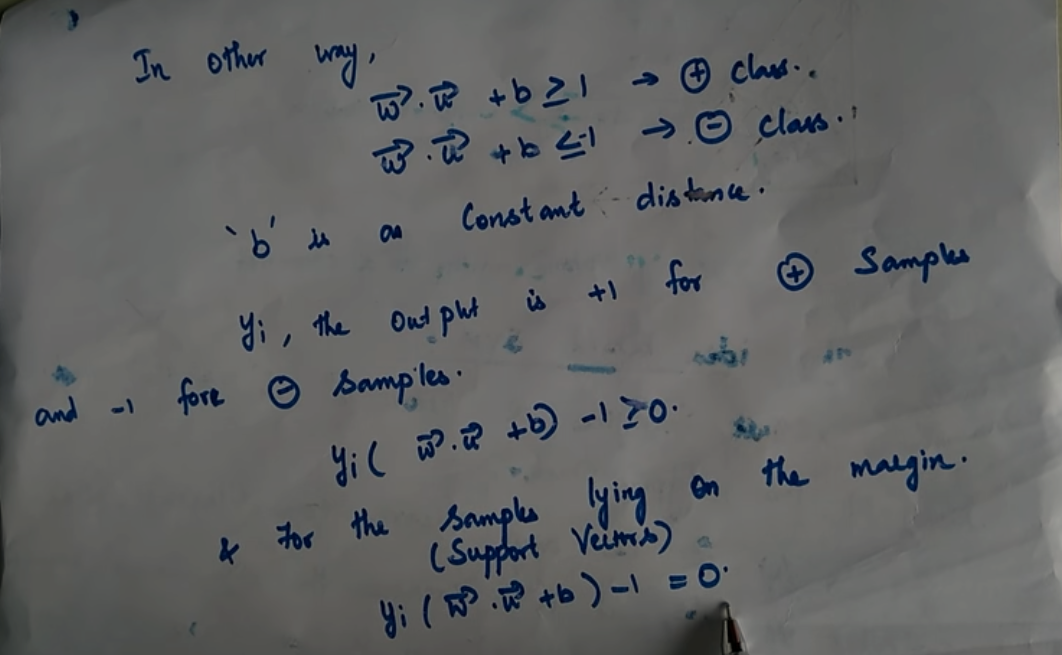 In other way,
w⃗ . u⃗ + b ≥ 1 → ⊕ class.
w⃗ . u⃗ + b ≤ -1 → ⊖ class.
'b' is as Constant distance.
yi, the output is +1 for ⊕ Samples
and -1 fore ⊖ samples.
yi ( w⃗ . u⃗ + b) - 1 ≥ 0.
& for the samples lying on the margin.
(Support Vectors)
yi ( w⃗ . u⃗ + b ) - 1 = 0.